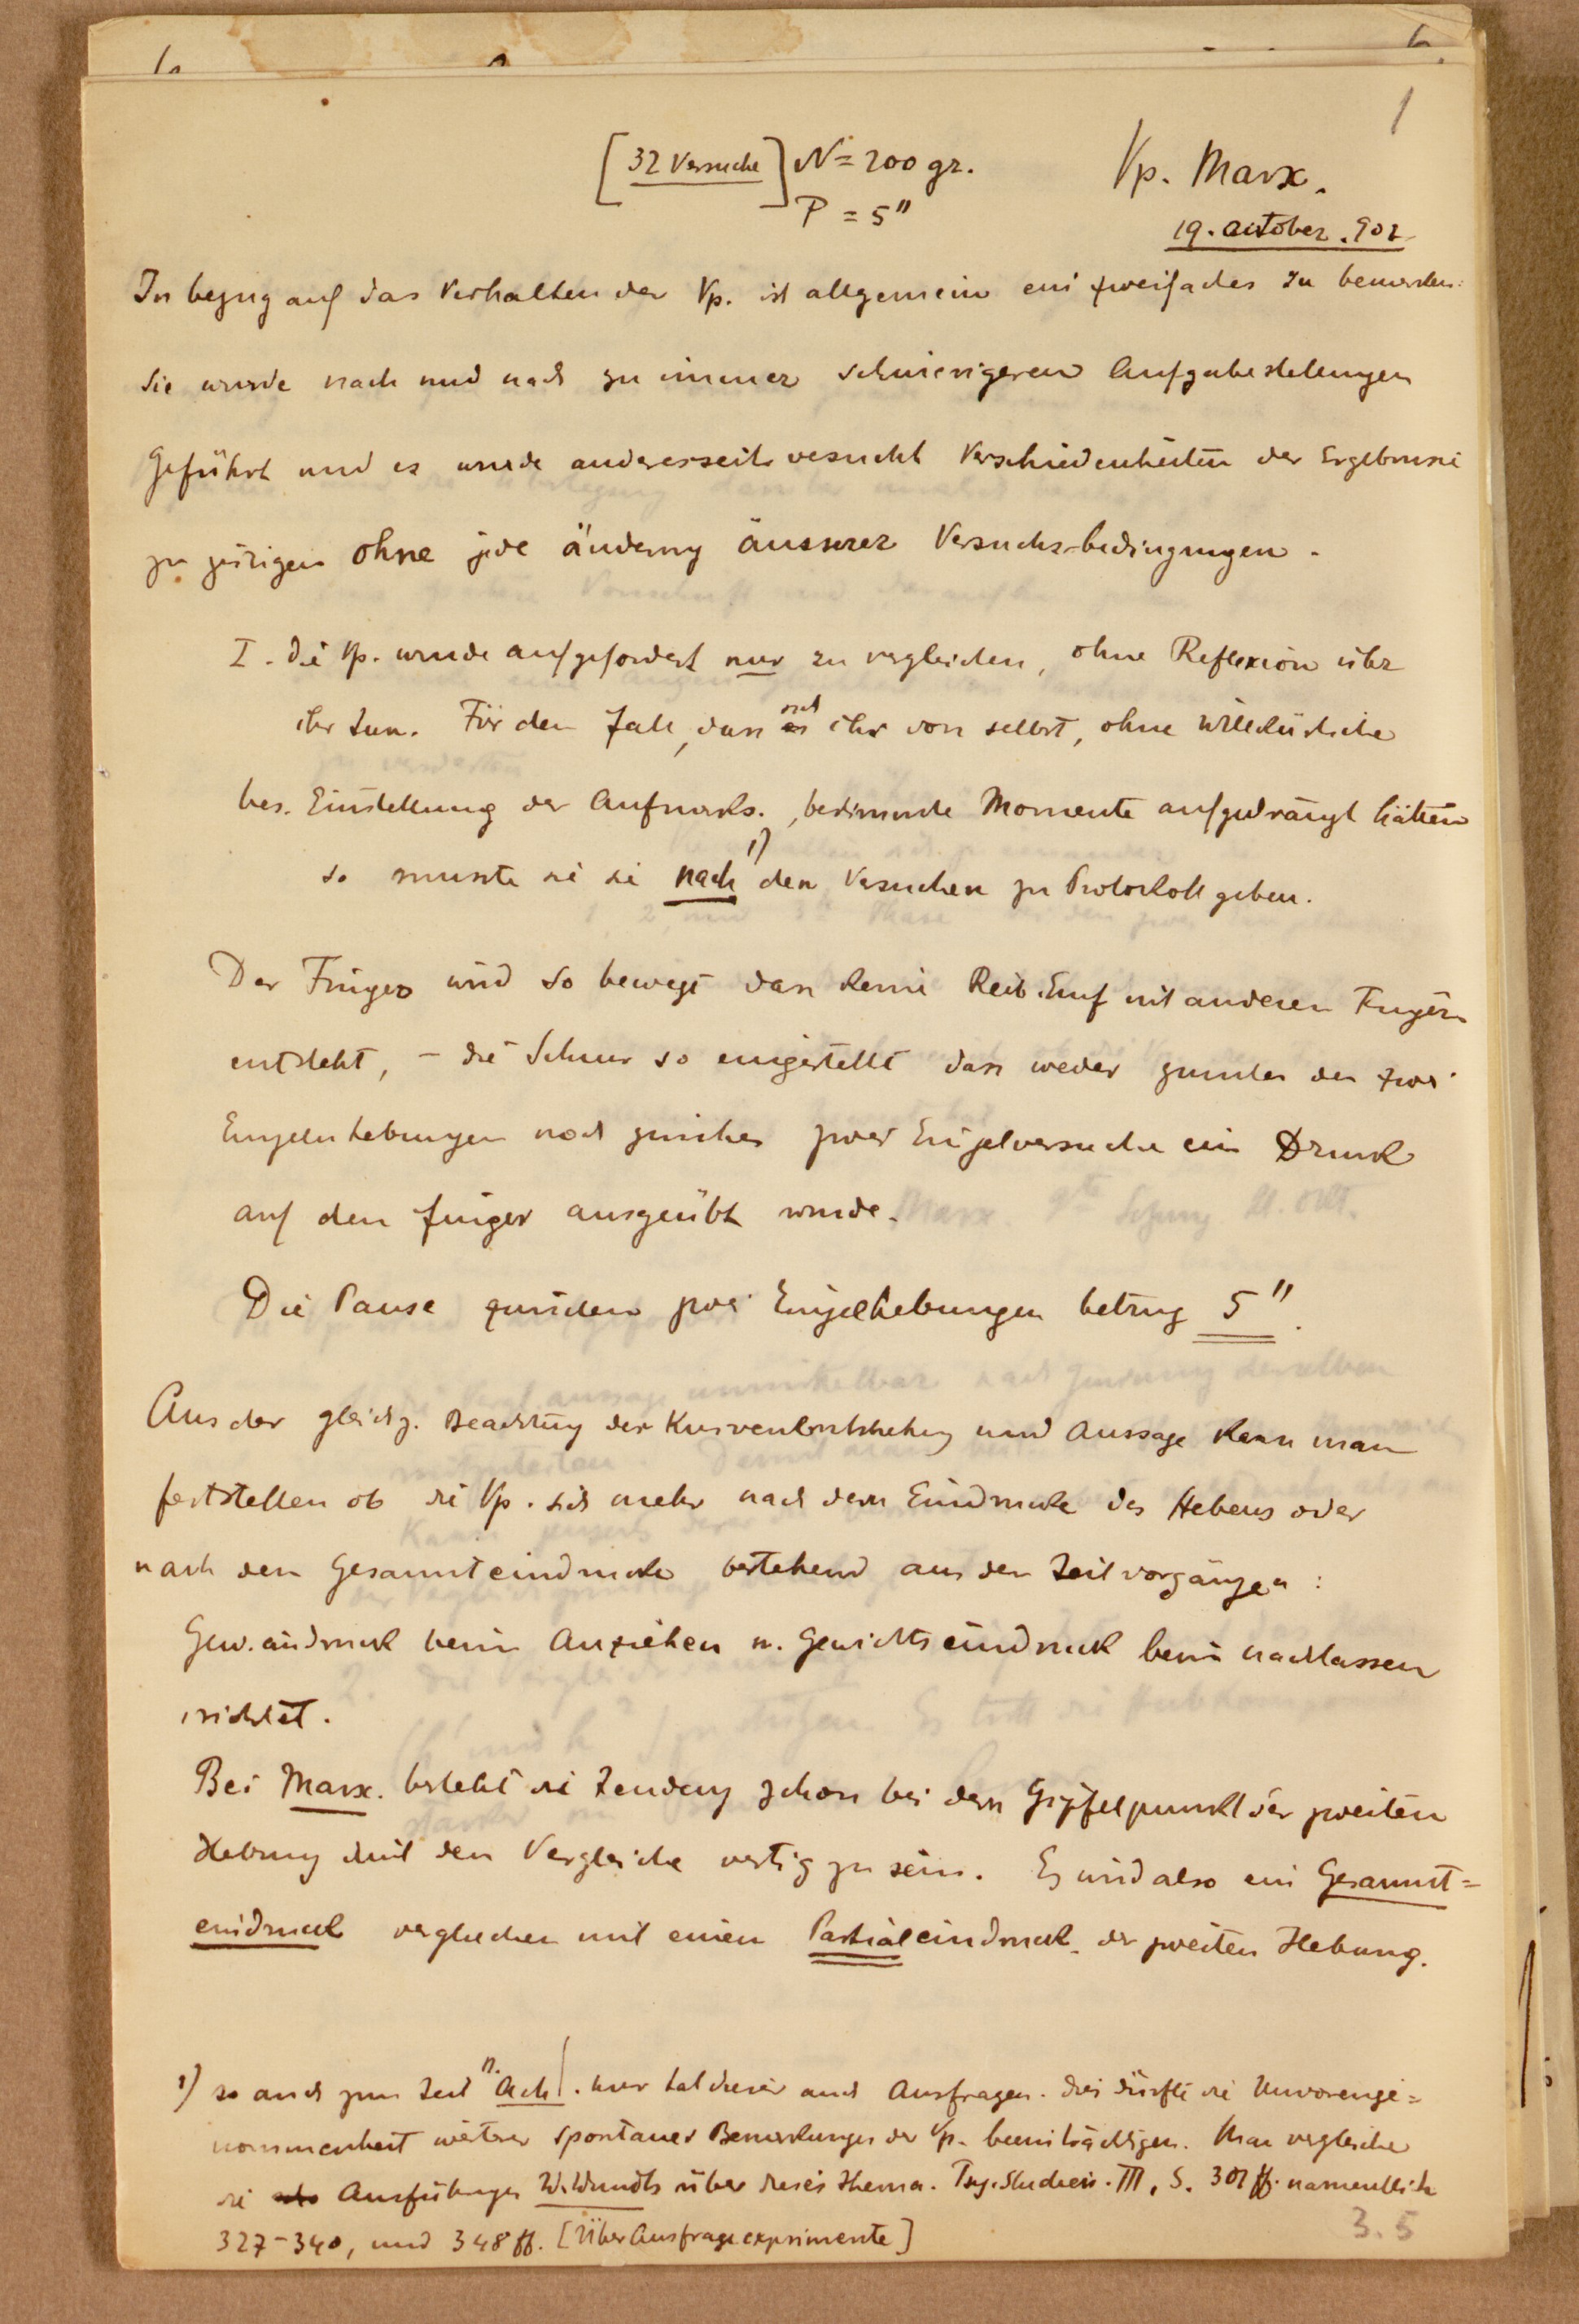 1
[32 Versuche] N = 200 gr.
P = 5"
Vp. Marx.
19. October. 902
In bezug auf das Verhalten der Vp. ist allgemein ein zweifaches zu bemerken:
Sie wurde nach und nach zu immer schwierigeren Aufgabestellungen
geführt und es wurde anderesseits versucht Verschiedenheiten der Ergebnisse
zu ohne jede änderung äusserer Versuchs-bedingungen.
I. Die Vp. wurde aufgefordert nur zu vergleichen, ohne Reflexion über
ihr tun. Für den Fall, dass sich ihr von selbst, ohne willkürliche
bes. Einstellung der Aufmerks., bestimmte Momente aufgedrängt hätten
so musste sie sie nach 1) den Versuchen zu Protokoll geben.
Der Finger wird so bewegt dass keine Reibung mit anderen Fingern
entsteht, – die Schnur so eingestellt dass weder zwischen den zwei
Einzelhebungen noch zwischen zwei Einzelversuchen ein Druck
auf den Finger ausgeübt wurde.
Die Pause zwischen zwei Einzelhebungen betrug 5".
Aus der gleichz. Beachtung der Kurvenentstehung und Aussage kann man
feststellen ob die Vp. sich mehr nach dem Eindrucke des Hebens oder
nach dem Gesammteindrucke bestehend aus den Teilvorgängen:
Gew.eindruck beim Anziehen u. Gewichtseindruck beim nachlassen
richtet.
Bei Marx. besteht die Tendenz schon bei dem Gipfelpunkt der zweiten
Hebung mit dem Vergleiche vertig zu sein. Es wird also ein Gesammt=
eindruck verglichen mit einem Partialeindruck der zweiten Hebung.
1) so auch zum Teil N. Ach. nur hat dieser auch Ausfragen. Dies dürfte die Unvoreinge=
nommenheit weiterer spontaner Bemerkungen der Vp. beeinträchtigen. Man vergleiche
die Ausführungen W. Wundts über dieses Thema. Psy. Studien. III, S. 301 ff. namentlich
327–340, und 348 ff. [Über Ausfrageexperimente]
3.5